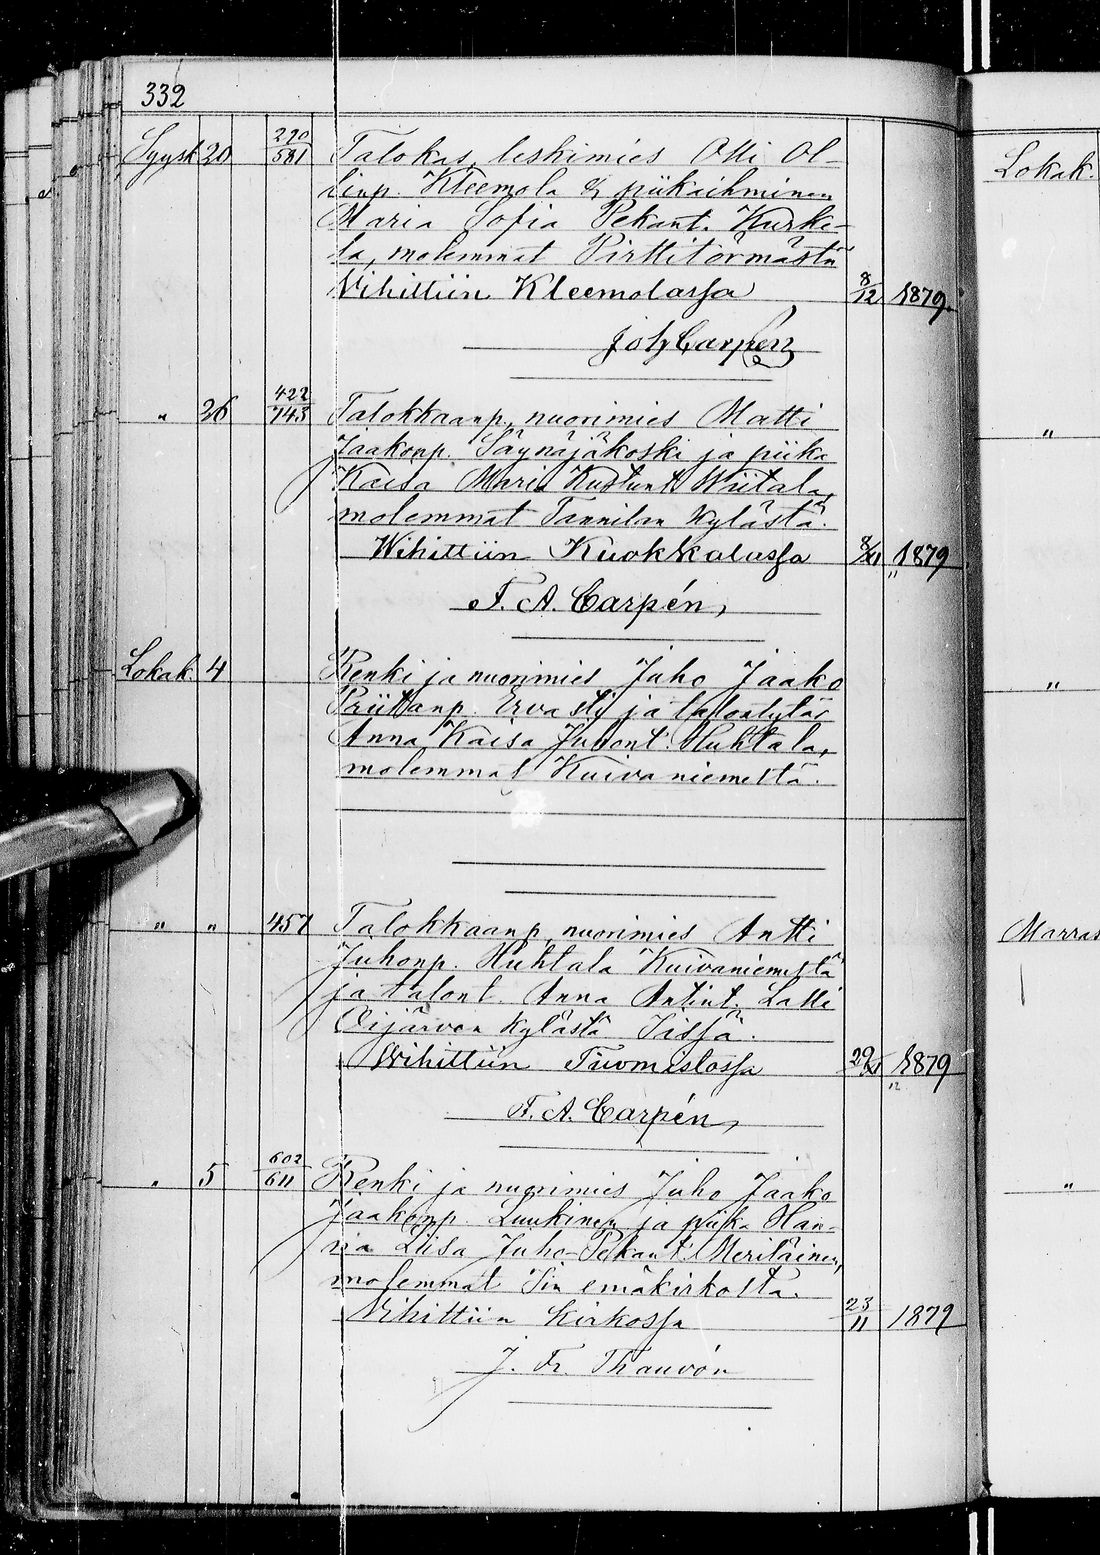 332
Syysk. 20 290/581 Talokas, leskimies Olli Ol-
linp. Kleemola & piikaihminen
Maria Sofia Pekant. Kurke-
la, molemmat Pirttitörmästä
Vihittiin Kleemolassa 8/12 1879.
Joh Carpén
" 26 422/743 Talokkaanp. nuorimies Matti
Jaakonp. Säynäjäkoski ja piika
Kaisa Maria Kustunt. Wiitala,
molemmat Tannilan kylästä.
Wihittiin Kuokkalassa 8/11 1879
F. A. Carpén,
Lokak. 4 Renki ja nuorimies Juho Jaako
Priitanp. Ervasti ja talontytär
Anna Kaisa Juhont. Huhtala,
molemmat Kuivaniemeltä.
" " 457 Talokkaanp. nuorimies Antti
Juhonp. Huhtala Kuivaniemeltä
ja talont. Anna Antint. Latti
Oijärven kylästä Iissä.
Wihittiin Tuomistossa 29/ 1879
12
F. A. Carpén,
" 5 602/611 Renki ja nuorimies Juho Jaako
Jaakonp. Luukinen ja piika Han-
na Liisa Juho-Pekant. Meriläinen,
molemmat Iin emäkirkolta.
Vihittiin kirkossa 23/11 1879
J. Fr. Thauvón
Lokak.
"
"
Marras
"